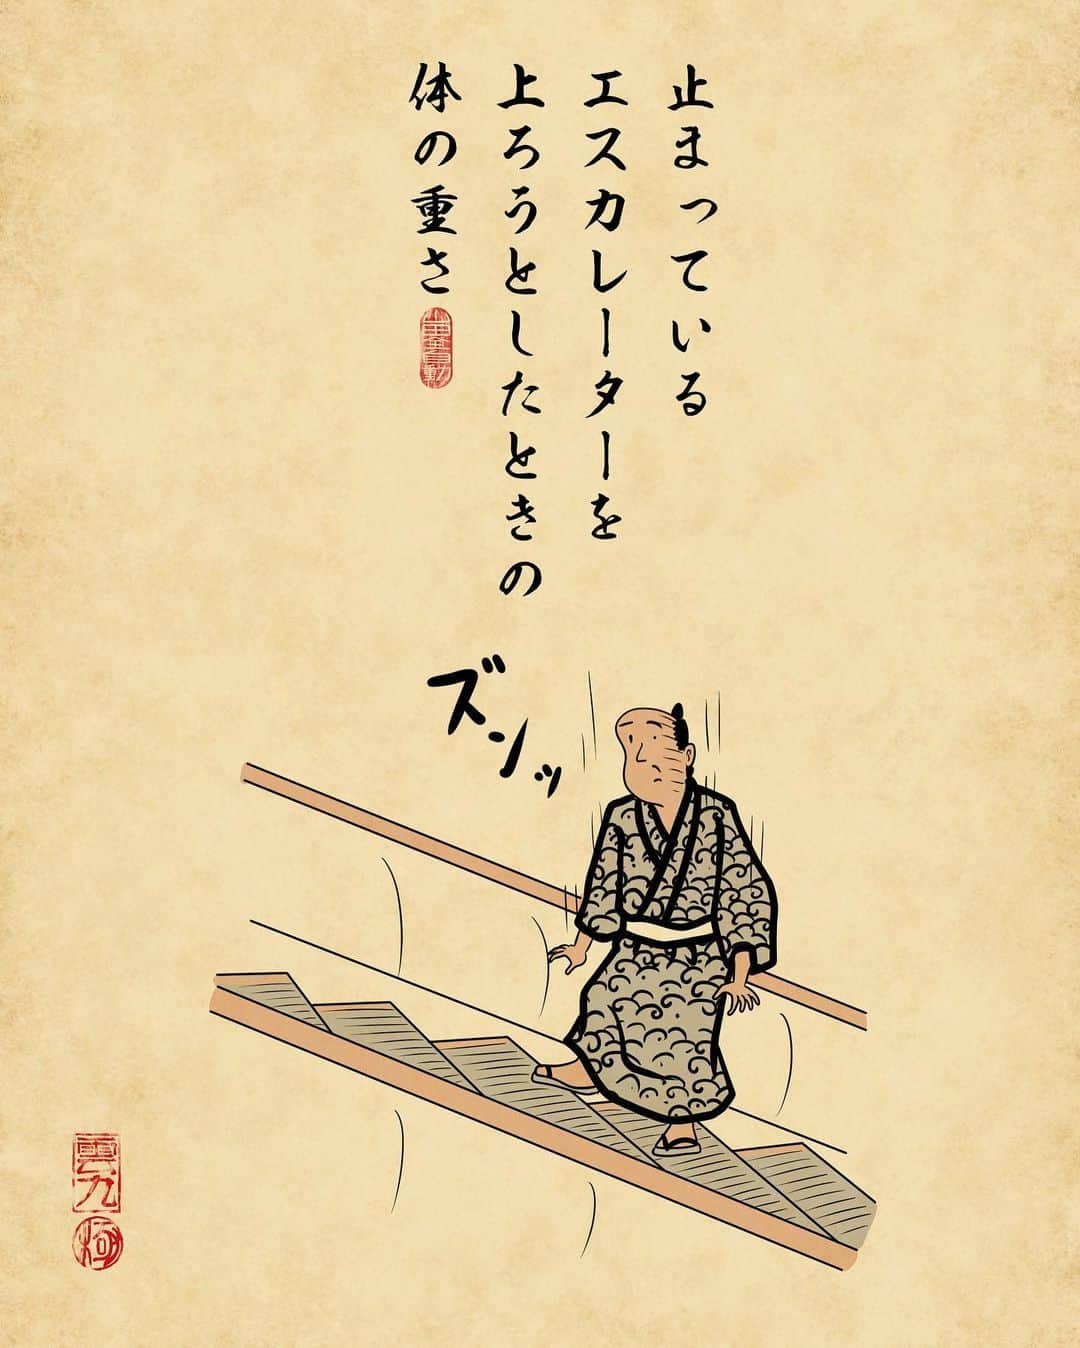 止まっている
エスカレーターを
上ろうとしたときの
体の重さ
ズンッ